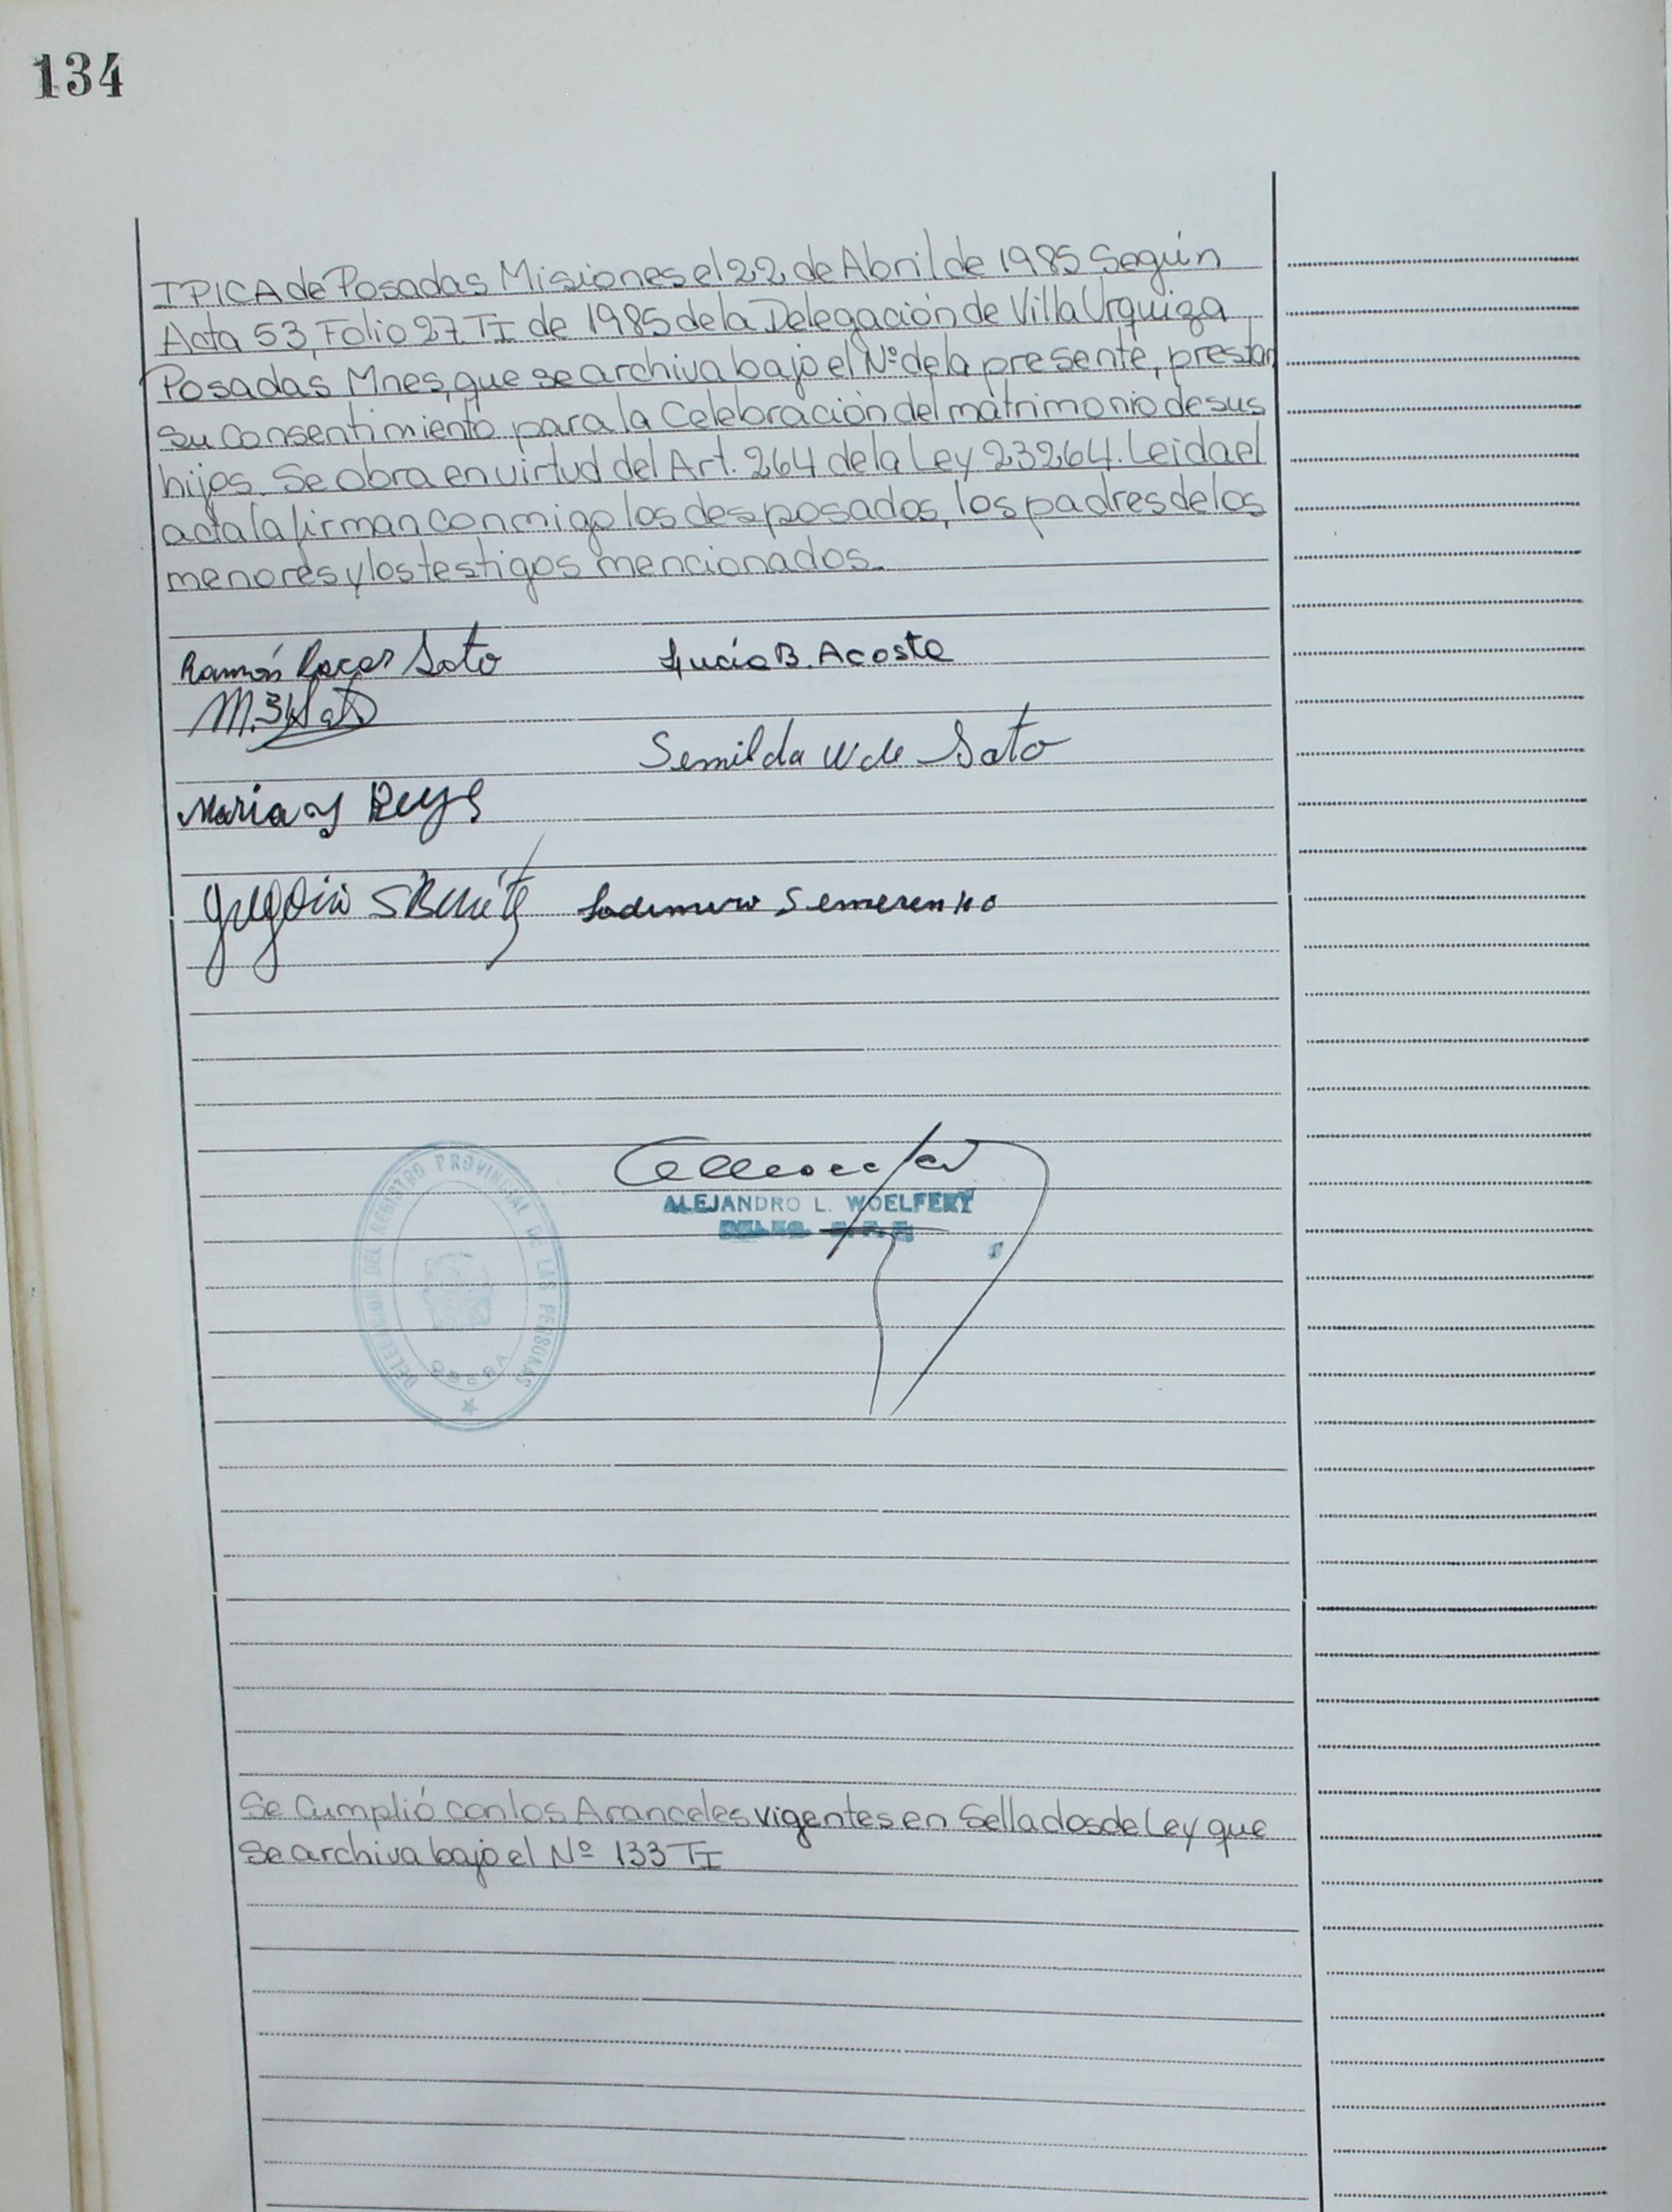 134
IPICA de Posadas Misiones el 22 de Abril de 1985 Según
Acta 53, Folio 27 TI de 1985 de la Delegación de Villa Urquiza
Posadas Mnes, que se archiva bajo el Nº de la presente, prestan
su consentimiento para la Celebración del matrimonio de sus
hijos. Se obra en virtud del Art. 264 de la Ley 23264. Leida el
acta la firman conmigo los desposados, los padres de los
menores y los testigos mencionados.
Ramón Soto Lucía B. Acosta
Semilda W de Soto
Maria
Gregorio S Benite Ladimiro Semerenko
DELEGACION DEL REGISTRO PROVINCIAL DE LAS PERSONAS
OBERA
ALEJANDRO L. WOELFERT
Se Cumplió con los Aranceles vigentes en Sellados de Ley que
se archiva bajo el Nº 133 TI